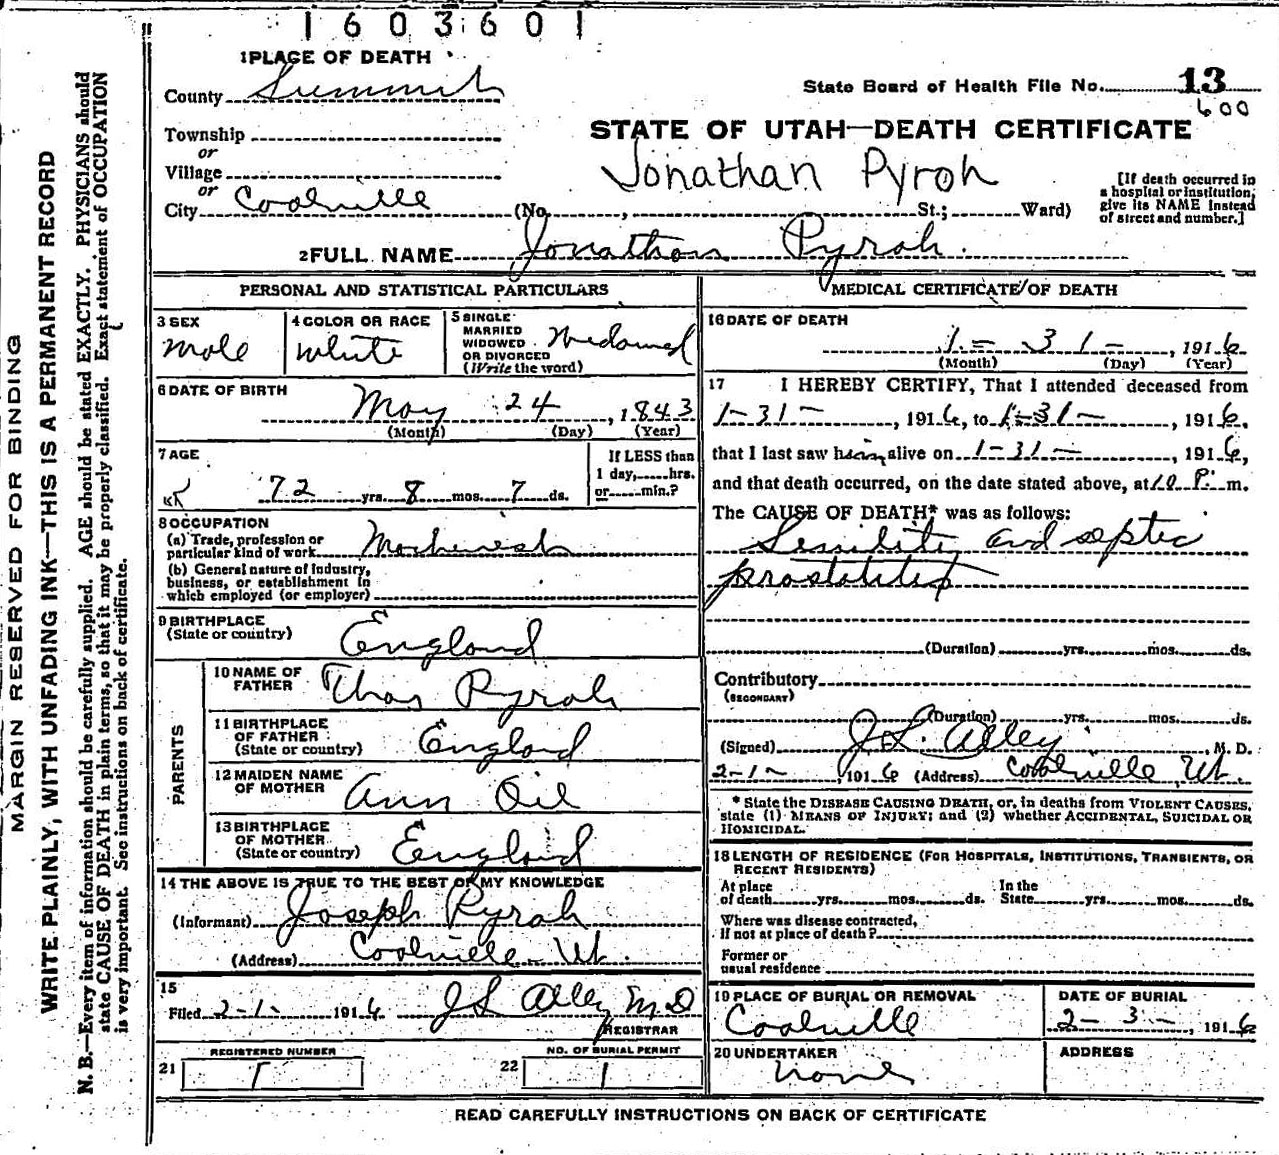 1603601
1 PLACE OF DEATH
County Summit
State Board of Health File No. 13
600
Township
or
Village
or
City Coalville
STATE OF UTAH—DEATH CERTIFICATE
Jonathan Pyrah
[If death occurred in
a hospital or institution,
give its NAME instead
of street and number.]
(No. , St.; Ward)
2 FULL NAME Jonathan Pyrah.
PERSONAL AND STATISTICAL PARTICULARS
3 SEX
Male
4 COLOR OR RACE
White
5 SINGLE
MARRIED
WIDOWED
OR DIVORCED
(Write the word)
Widowed
6 DATE OF BIRTH
May 24, 1843
(Month) (Day) (Year)
7 AGE
72 yrs. 8 mos. 7 ds.
If LESS than
1 day, hrs.
or min.?
8 OCCUPATION
(a) Trade, profession or
particular kind of work Machinist
(b) General nature of industry,
business, or establishment in
which employed (or employer)
9 BIRTHPLACE
(State or country) England
PARENTS
10 NAME OF
FATHER Thos Pyrah
11 BIRTHPLACE
OF FATHER
(State or country) England
12 MAIDEN NAME
OF MOTHER Ann Oil
13 BIRTHPLACE
OF MOTHER
(State or country) England
14 THE ABOVE IS TRUE TO THE BEST OF MY KNOWLEDGE
(Informant) Joseph Pyrah
(Address) Coalville Ut.
15
Filed 2-1- 1916 J L Alley MD
REGISTRAR
REGISTERED NUMBER
21 1
NO. OF BURIAL PERMIT
22 1
MEDICAL CERTIFICATE OF DEATH
16 DATE OF DEATH
1 - 31 -, 1916
(Month) (Day) (Year)
17 I HEREBY CERTIFY, That I attended deceased from
1-31-, 1916, to 1-31-, 1916,
that I last saw him alive on 1-31-, 1916,
and that death occurred, on the date stated above, at 10 P. m.
The CAUSE OF DEATH* was as follows:
Senility and septic
prostatitis
(Duration) yrs. mos. ds.
Contributory
(SECONDARY)
(Duration) yrs. mos. ds.
(Signed) J.L. Alley, M. D.
2-1-, 1916 (Address) Coalville Ut.
* State the DISEASE CAUSING DEATH, or, in deaths from VIOLENT CAUSES,
state (1) MEANS OF INJURY; and (2) whether ACCIDENTAL, SUICIDAL OR
HOMICIDAL.
18 LENGTH OF RESIDENCE (FOR HOSPITALS, INSTITUTIONS, TRANSIENTS, OR
RECENT RESIDENTS)
At place
of death yrs. mos. ds.
In the
State yrs. mos. ds.
Where was disease contracted,
If not at place of death?
Former or
usual residence
19 PLACE OF BURIAL OR REMOVAL
Coalville
DATE OF BURIAL
2-3-, 1916
20 UNDERTAKER
none
ADDRESS
READ CAREFULLY INSTRUCTIONS ON BACK OF CERTIFICATE
MARGIN RESERVED FOR BINDING
WRITE PLAINLY, WITH UNFADING INK—THIS IS A PERMANENT RECORD
N. B.—Every item of information should be carefully supplied. AGE should be stated EXACTLY. PHYSICIANS should
state CAUSE OF DEATH in plain terms, so that it may be properly classified. Exact statement of OCCUPATION
is very important. See instructions on back of certificate.